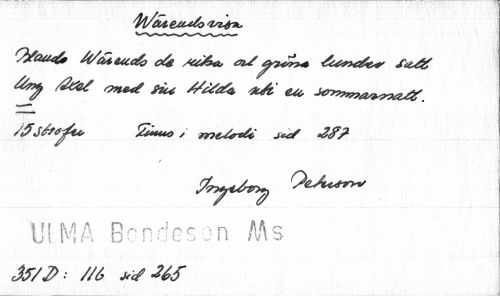 Wärendsvisa
Blando Wärends de rika och gröna lunder satt
Ung Axel med sin Hilda uti en sommarnatt.
15 strofer Finns i melodi sid 287
Ingeborg Peterson
ULMA Bondeson Ms
351 D: 116 sid 265